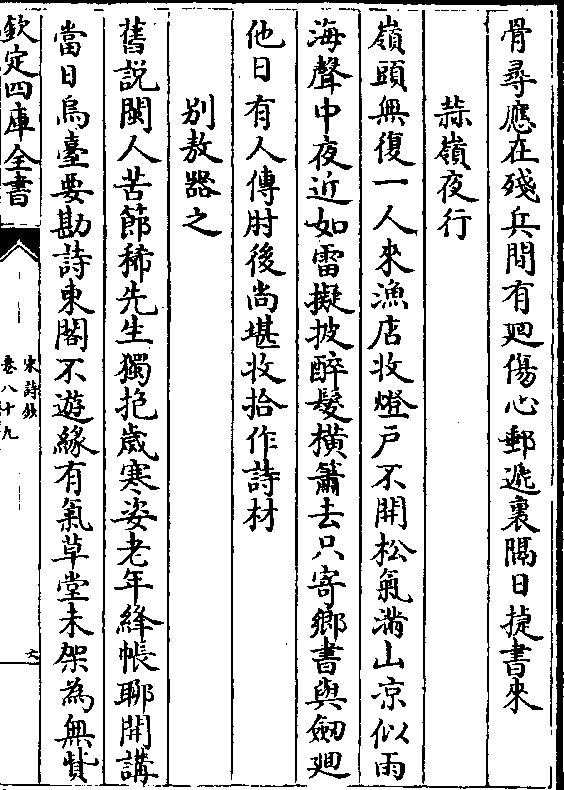 骨尋應在殘兵間有廻傷心郵遞裏隔日捷書來
蒜嶺夜行
嶺頭無復一人來漁店收燈戶不開松氣滿山凉似雨
海聲中夜近如雷擬披醉髮橫簫去只寄鄉書與劒廻
他日有人傳肘後尚堪收拾作詩材
别敖器之
舊説閩人苦節稀先生獨抱歲寒姿老年絳帳聊開講
當日烏臺要勘詩東閣不遊緣有氣草堂未架為無貲
欽定四庫全書
宋詩鈔
卷八十九